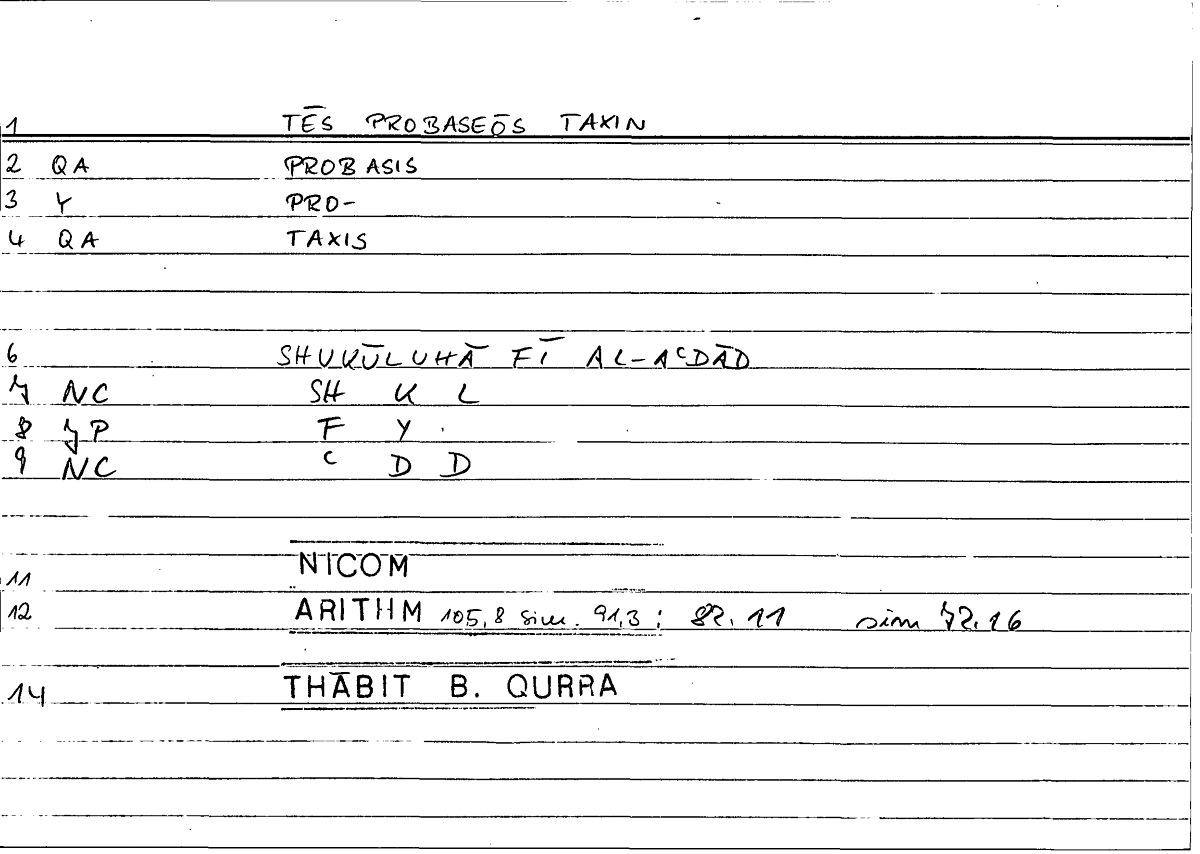 1 TĒS PROBASEŌS TAXIN
2 QA PROBASIS
3 Y PRO-
4 QA TAXIS
6 SHUKŪLUHĀ FĪ AL-AᶜDĀD
7 NC SH K L
8 7P F Y
9 NC ᶜ D D
11 NICOM
12 ARITHM 105,8 sim. 91,3 : 82.11 sim 72.16
14 THĀBIT B. QURRA